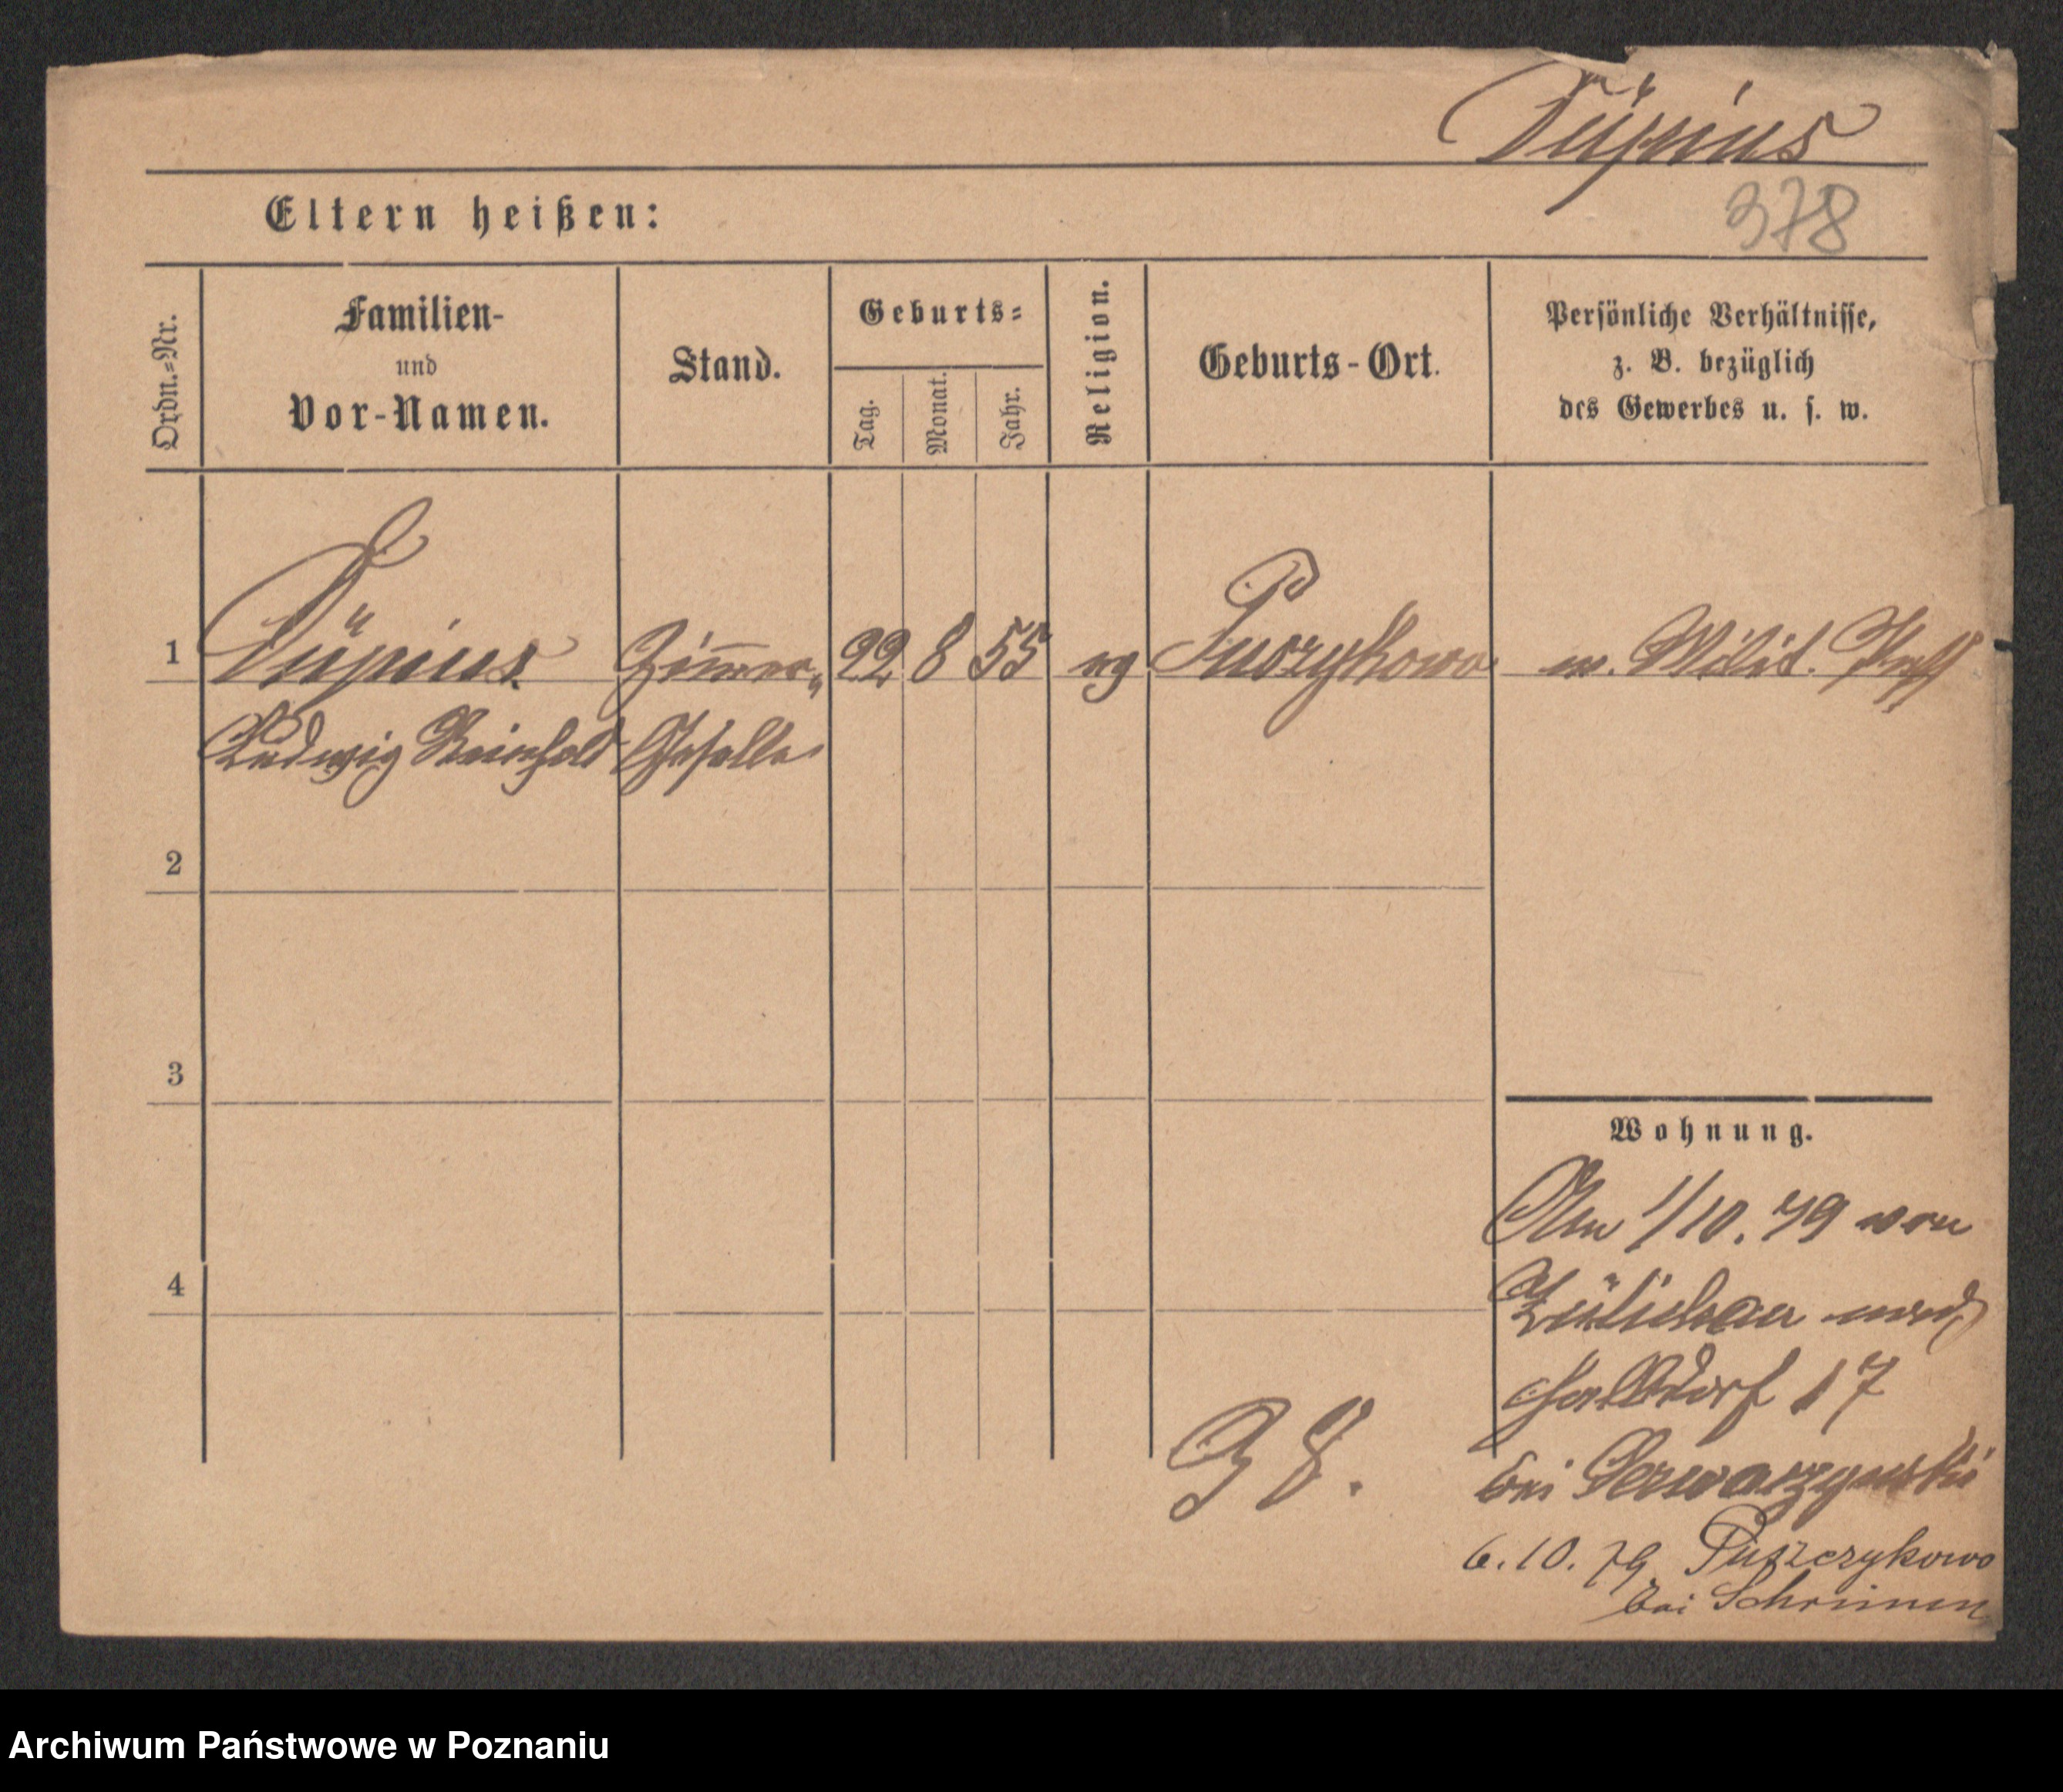 Düpius
378
Eltern heißen:
Ordn.=Nr.
Familien-
und
Vor-Namen.
Stand.
Geburts=
Tag.
Monat.
Jahr.
Religion.
Geburts-Ort.
Persönliche Verhältnisse,
z. B. bezüglich
des Gewerbes u. s. w.
1 Düpius Zimmer= 22 8 55 ev Puszykowo m. Milit. Paß
Ludwig Reinhold Geselle
2
3
Wohnung.
Am 1/10. 79 von
Züllichau nach
Halbdorf 17
4
bei
38.
6.10.79 Puszczykowo
bei Schrimm
Archiwum Państwowe w Poznaniu